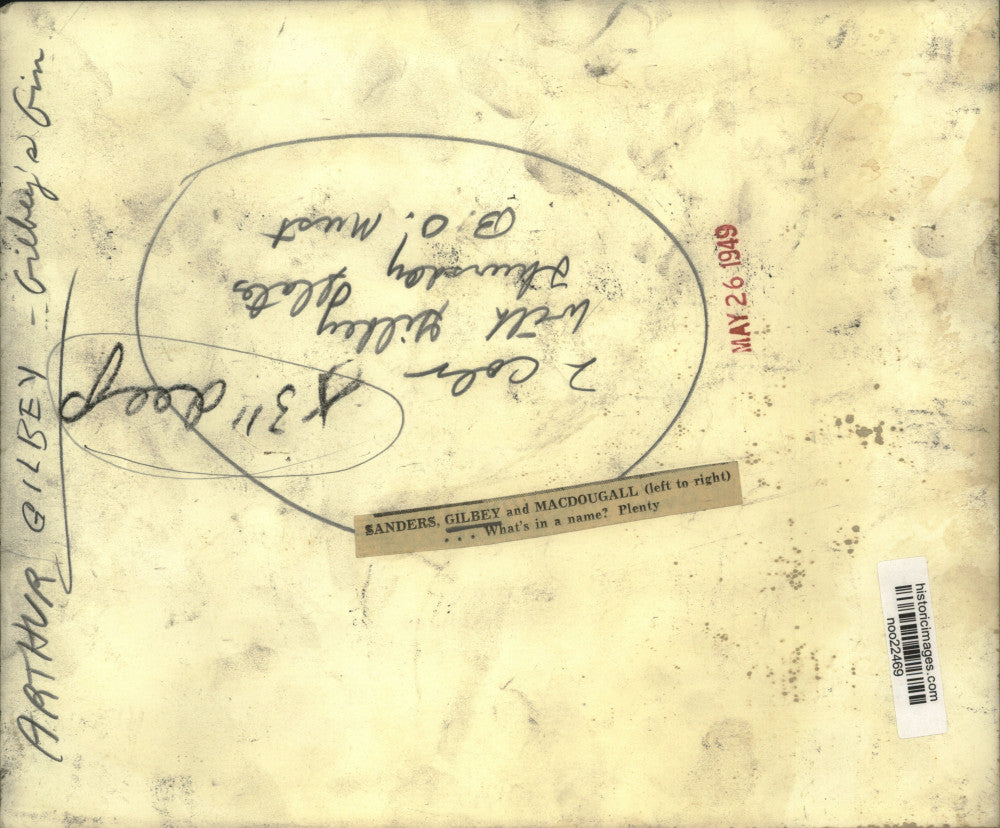 ARTHUR GILBEY - Gilbey's Gin
2 Col
with Gilbey
Thursday
B.O. Must
x 3" deep
MAY 26 1949
SANDERS, GILBEY and MACDOUGALL (left to right)
. . . What's in a name? Plenty
historicimages.com
noo22469